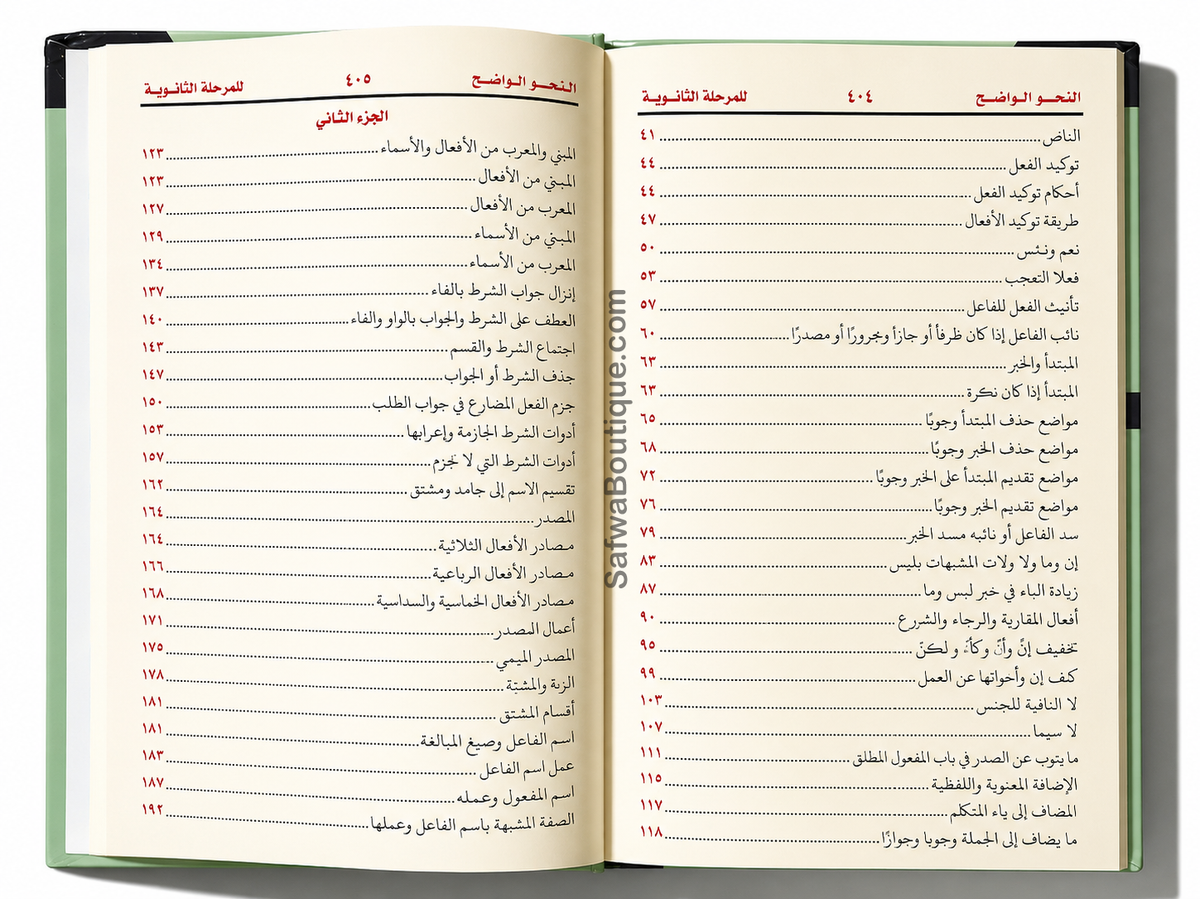 النحو الواضح ٤٠٤ للمرحلة الثانوية
الناض ٤١
توكيد الفعل ٤٤
أحكام توكيد الفعل ٤٤
طريقة توكيد الأفعال ٤٧
نعم ونئس ٥٠
فعلا التعجب ٥٣
تأنيث الفعل للفاعل ٥٧
نائب الفاعل إذا كان ظرفأ أو جازأ ومجرورًا أو مصدرًا ٦٠
المبتدأ والخبر ٦٣
المبتدأ إذا كان نكرة ٦٣
مواضع حذف المبتدأ وجوبًا ٦٥
مواضع حذف الخبر وجوبًا ٦٨
مواضع تقديم المبتدأ على الخبر وجوبًا ٧٢
مواضع تقديم الخبر وجوبًا ٧٦
سد الفاعل أو نائبه مسد الخبر ٧٩
إن وما ولا ولات المشبهات بليس ٨٣
زيادة الباء في خبر لبس وما ٨٧
أفعال المقارية والرجاء والشررع ٩٠
تخفيف إنّ وأنّ وكأنّ و لكنّ ٩٥
كنف إن وأحواتها عن العمل ٩٩
لا النافية للجنس ١٠٣
لا سيما ١٠٧
ما يتوب عن الصدر في باب المفعول المطلق ١١١
الإضافة المعنوية واللفظية ١١٥
المضاف إلى ياء المتكلم ١١٧
ما يضاف إلى الجملة وجوبا وجوازًا ١١٨
النحو الواضح ٤٠٥ للمرحلة الثانوية
الجزء الثاني
المبني والمعرب من الأفعال والأسماء ١٢٣
المبني من الأفعال ١٢٣
المعرب من الأفعال ١٢٧
المبني من الأسماء ١٢٩
المعرب من الأسماء ١٣٤
إنزال جواب الشرط بالفاء ١٣٧
العطف على الشرط والجواب بالواو والفاء ١٤٠
اجتماع الشرط والقسم ١٤٣
جذف الشرط أو الجواب ١٤٧
جزم الفعل المضارع في جواب الطلب ١٥٠
أدوات الشرط الجازمة وإعرابها ١٥٣
أدوات الشرط التي لا تجزم ١٥٧
تقسيم الاسم إلى جامد ومشتق ١٦٢
المصدر ١٦٤
مصادر الأفعال الثلاثية ١٦٤
مصادر الأفعال الرباعية ١٦٦
مصادر الأفعال الخماسية والسداسية ١٦٨
أعمال المصدر ١٧١
المصدر الميمي ١٧٥
الزنة والمشبّة ١٧٨
أقسام المشتق ١٨١
اسم الفاعل وصيغ المبالغة ١٨١
عمل اسم الفاعل ١٨٣
اسم المفعول وعمله ١٨٧
الصفة المشبهة باسم الفاعل وعملها ١٩٢
SafwaBoutique.com